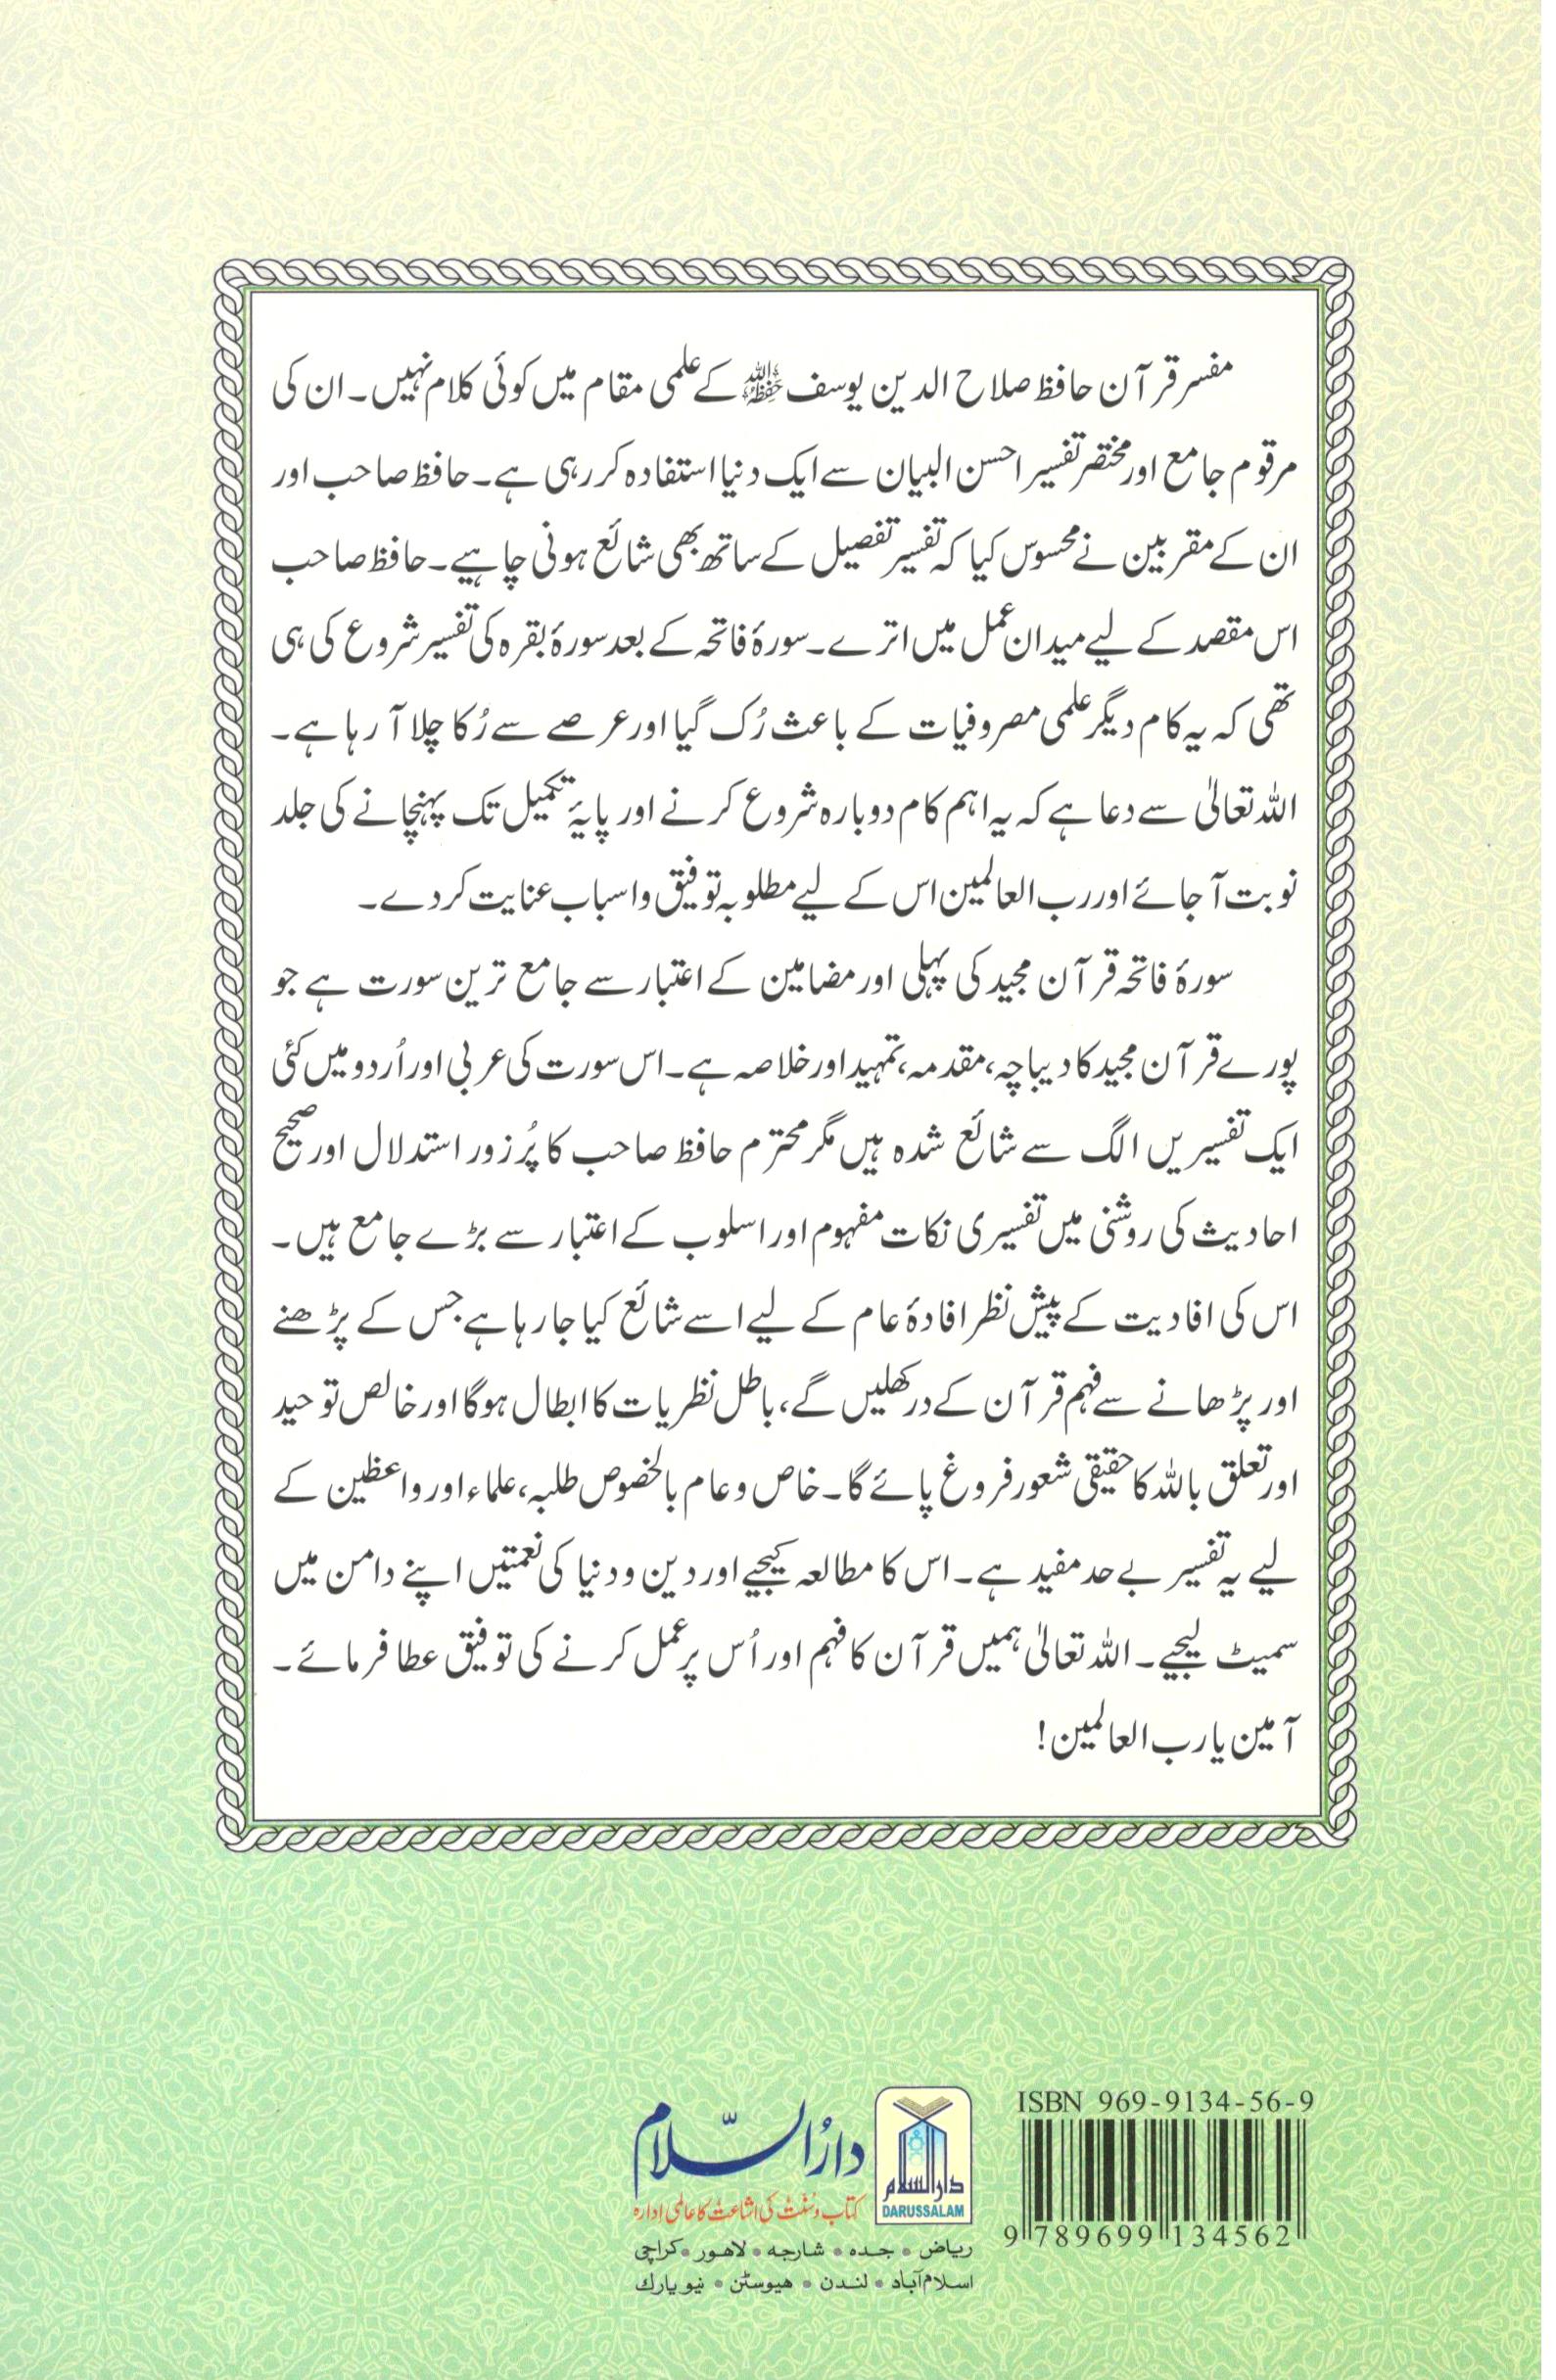 مفسر قرآن حافظ صلاح الدین یوسف حفظہ اللہ کے علمی مقام میں کوئی کلام نہیں۔ ان کی
مرقوم جامع اور مختصر تفسیر احسن البیان سے ایک دنیا استفادہ کر رہی ہے۔ حافظ صاحب اور
ان کے مقربین نے محسوس کیا کہ تفسیر تفصیل کے ساتھ بھی شائع ہونی چاہیے۔ حافظ صاحب
اس مقصد کے لیے میدان عمل میں اترے۔ سورۂ فاتحہ کے بعد سورۂ بقرہ کی تفسیر شروع کی ہی
تھی کہ یہ کام دیگر علمی مصروفیات کے باعث رُک گیا اور عرصے سے رُکا چلا آ رہا ہے۔
اللہ تعالیٰ سے دعا ہے کہ یہ اہم کام دوبارہ شروع کرنے اور پایۂ تکمیل تک پہنچانے کی جلد
نوبت آ جائے اور رب العالمین اس کے لیے مطلوبہ توفیق و اسباب عنایت کر دے۔
سورۂ فاتحہ قرآن مجید کی پہلی اور مضامین کے اعتبار سے جامع ترین سورت ہے جو
پورے قرآن مجید کا دیباچہ، مقدمہ، تمہید اور خلاصہ ہے۔ اس سورت کی عربی اور اُردو میں کئی
ایک تفسیریں الگ سے شائع شدہ ہیں مگر محترم حافظ صاحب کا پُرزور استدلال اور صحیح
احادیث کی روشنی میں تفسیری نکات مفہوم اور اسلوب کے اعتبار سے بڑے جامع ہیں۔
اس کی افادیت کے پیش نظر افادۂ عام کے لیے اسے شائع کیا جا رہا ہے جس کے پڑھنے
اور پڑھانے سے فہم قرآن کے در کھلیں گے، باطل نظریات کا ابطال ہوگا اور خالص توحید
اور تعلق باللہ کا حقیقی شعور فروغ پائے گا۔ خاص و عام بالخصوص طلبہ، علماء اور واعظین کے
لیے یہ تفسیر بے حد مفید ہے۔ اس کا مطالعہ کیجیے اور دین و دنیا کی نعمتیں اپنے دامن میں
سمیٹ لیجیے۔ اللہ تعالیٰ ہمیں قرآن کا فہم اور اُس پر عمل کرنے کی توفیق عطا فرمائے۔
آمین یا رب العالمین!
ISBN 969-9134-56-9
9 789699 134562
دارالسلام
DARUSSALAM
دارُالسّلام
کتاب و سُنّت کی اشاعت کا عالمی ادارہ
ریاض • جدہ • شارجه • لاهور • کراچی
اسلام آباد • لندن • هیوسٹن • نیو یارک